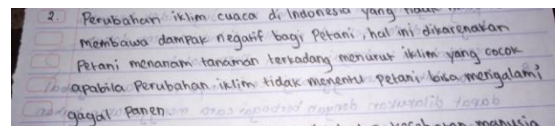 2. Perubahan iklim cuaca di Indonesia yang
membawa dampak negatif bagi Petani, hal ini dikarenakan
Petani menanam tanaman terkadang menurut iklim yang cocok
apabila Perubahan iklim tidak menentu petani bisa mengalami
gagal Panen
manusia